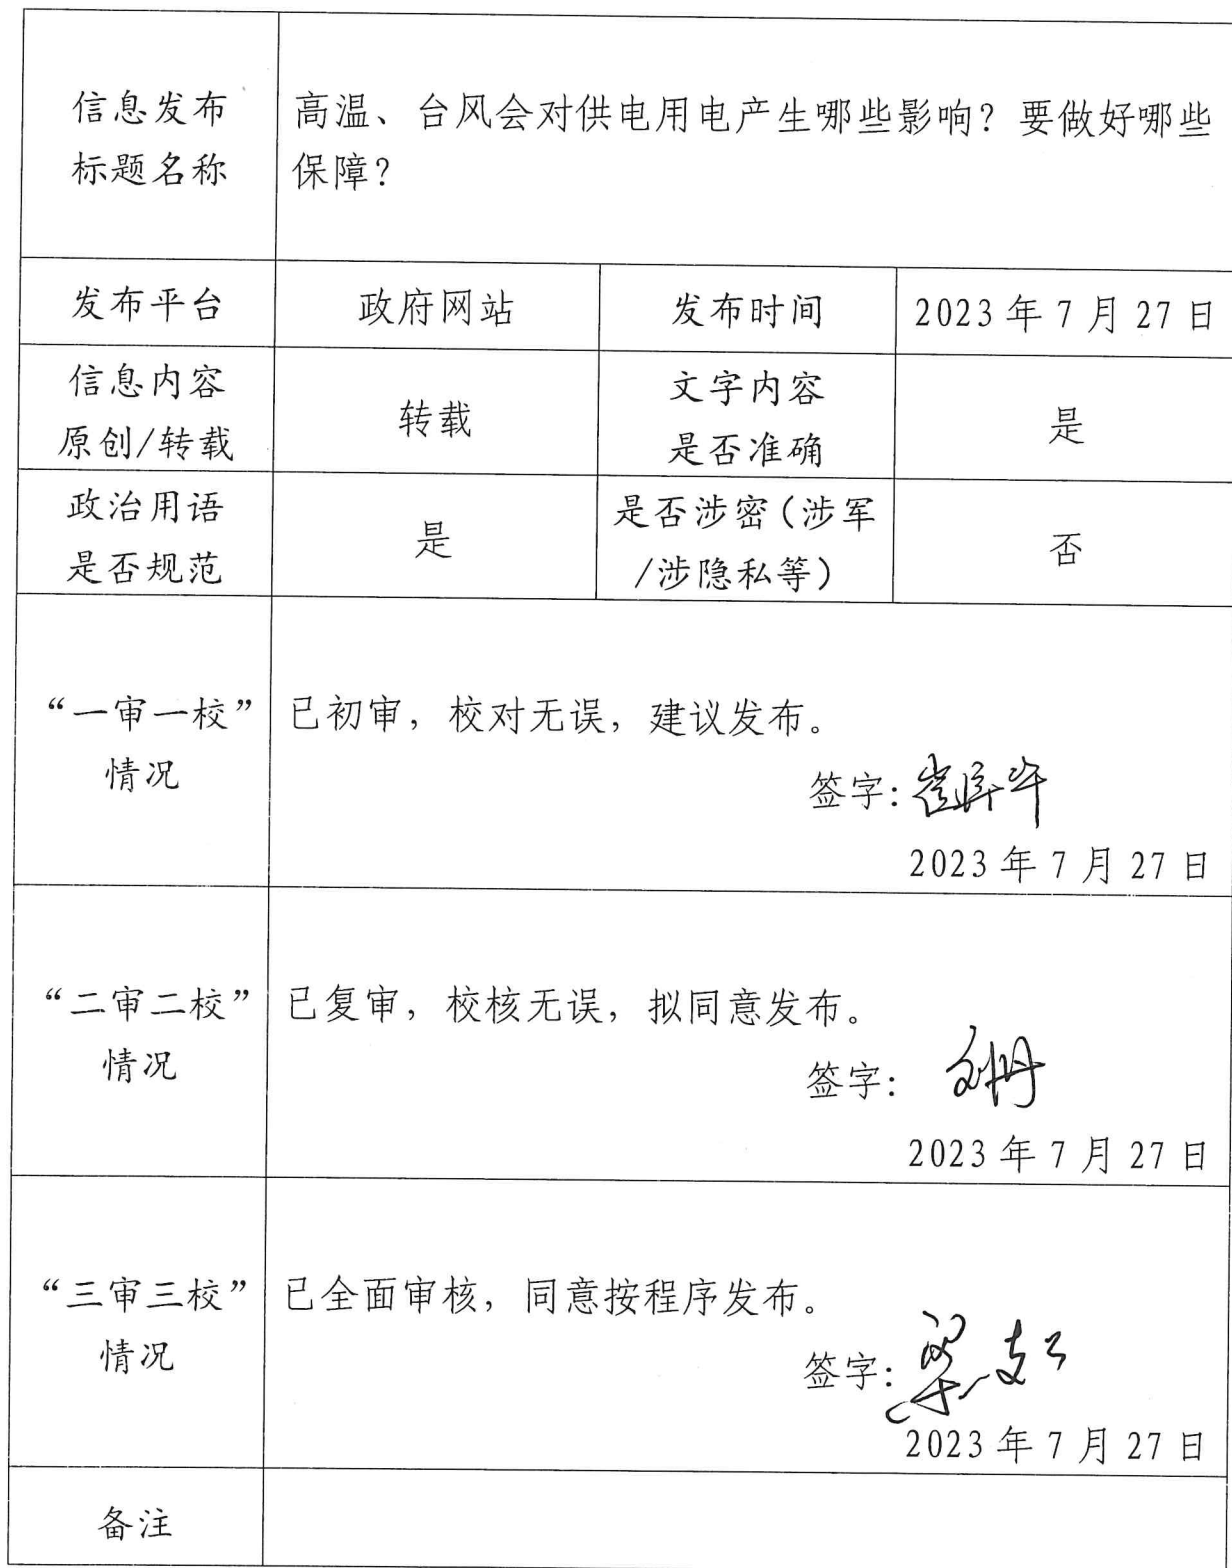 信息发布
标题名称
高温、台风会对供电用电产生哪些影响？要做好哪些
保障？
发布平台
政府网站
发布时间
2023年7月27日
信息内容
原创/转载
转载
文字内容
是否准确
是
政治用语
是否规范
是
是否涉密(涉军
/涉隐私等)
否
“一审一校”
情况
已初审，校对无误，建议发布。
签字:
2023年7月27日
“二审二校”
情况
已复审，校核无误，拟同意发布。
签字: 刘丹
2023年7月27日
“三审三校”
情况
已全面审核，同意按程序发布。
签字:
2023年7月27日
备注